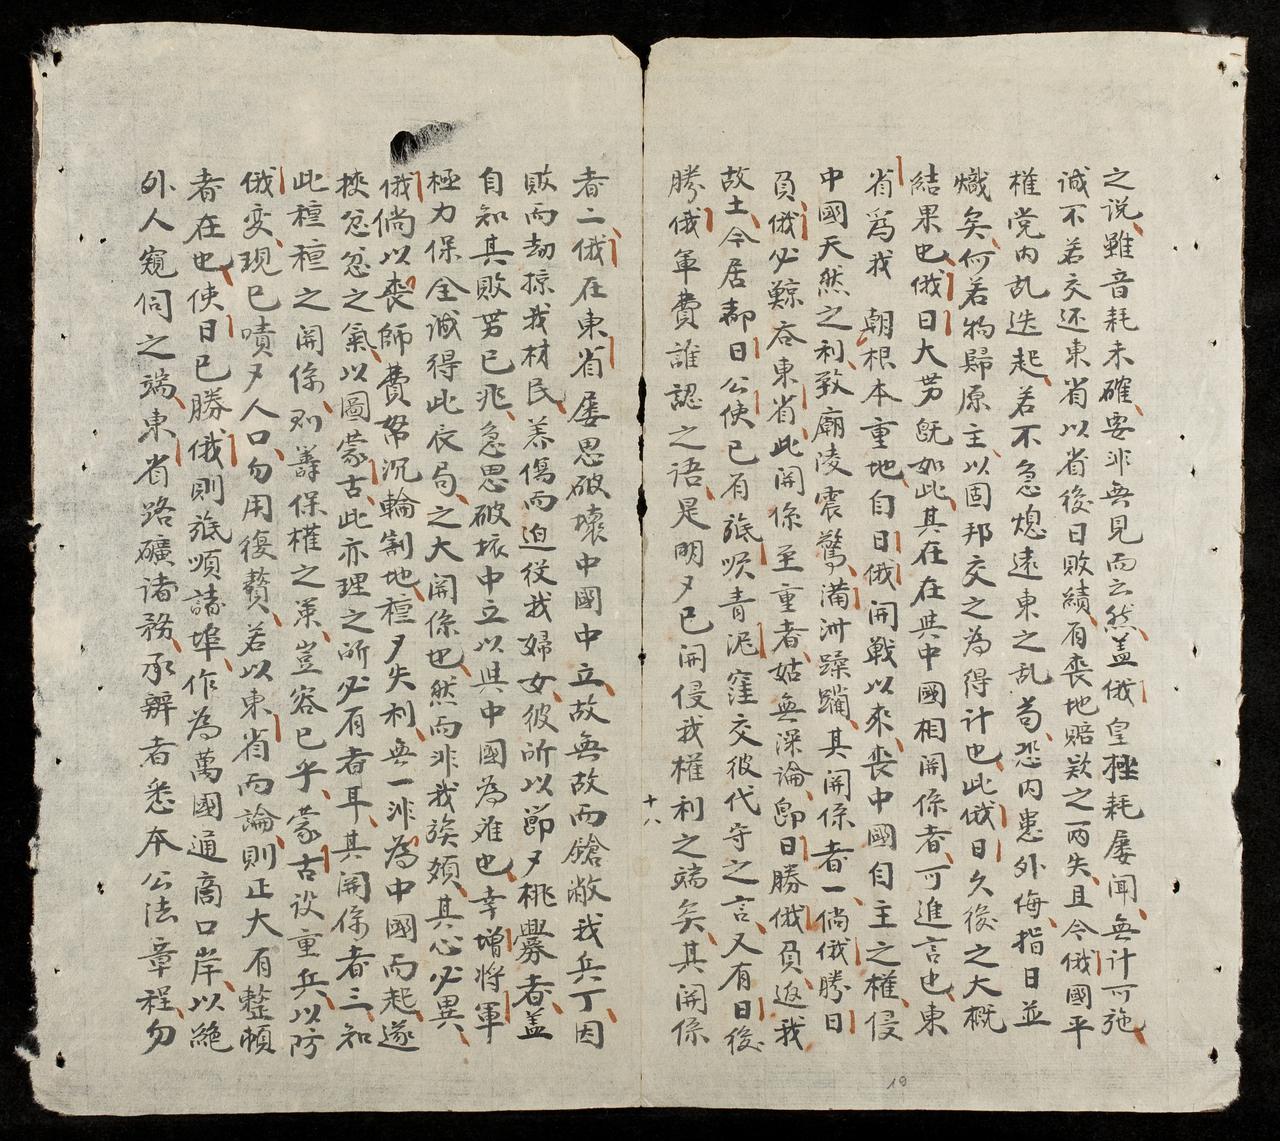 之說雖音耗未確要非無見而云然蓋俄皇極耗屢聞無計可施
誠不若交还東省以省後日敗績有丧地賠欵之両失且今俄國平
權党内乱迭起若不急熄遠東之乱苟恐内患外侮指日並
熾矣何若物歸原主以固邦交之為得計也此俄日久後之大概
結果也俄日大势既如此其在在與中國相開係者可進言也東
省爲我 朝根本重地自日俄開戰以來丧中國自主之權侵
中國天然之利致廟陵震驚滿洲蹂躪其開係者一倘俄勝日
負俄必鯨吞東省此開係至重者姑無深論即日勝俄負返我
故土今居都日公使已有旅順青泥窪交彼代守之言又有日後
勝俄軍費誰認之語是明夕已開侵我權利之端矣其開係
十八
者二俄在東省屡思破壞中國中立故無故而槍斃我兵丁因
敗而劫掠我材民养傷而迫従我婦女彼所以節夕桃釁者蓋
自知其敗势已兆急思破坏中立以與中國為难也幸增將軍
極力保全誠得此辰局之大開係也然而非我族類其心必異
俄倘以丧師費帑沉輪割地種夕失利無一非為中國而起遂
挾忿忿之氣以圖蒙古此亦理之所必有者耳其開係者三知
此種種之開係則籌保權之策豈容已乎蒙古设重兵以防
俄变現已嘖夕人口勿用復贅若以東省而論則正大有整頓
者在也使日已勝俄則旅順諸埠作為萬國通商口岸以絕
外人窺伺之端東省路礦诸務承辦者悉本公法章程勿
19